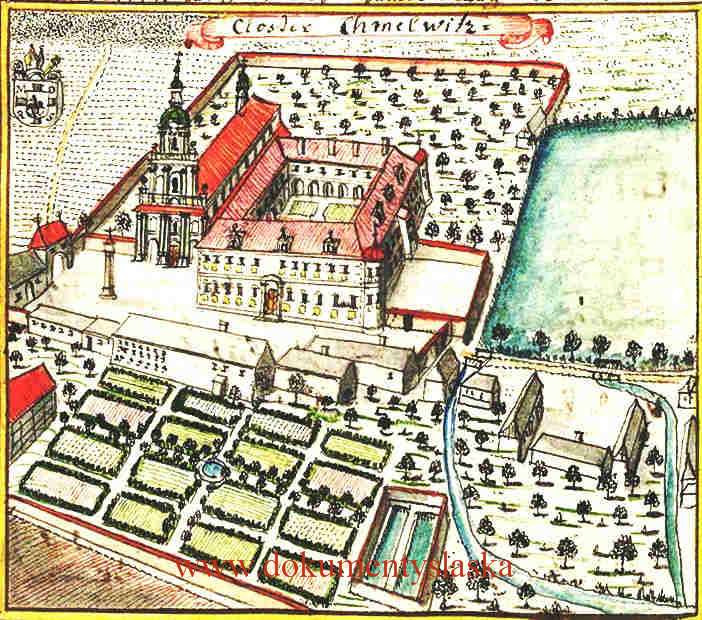 Closter Chmelwitz=
www.dokumentyslaska